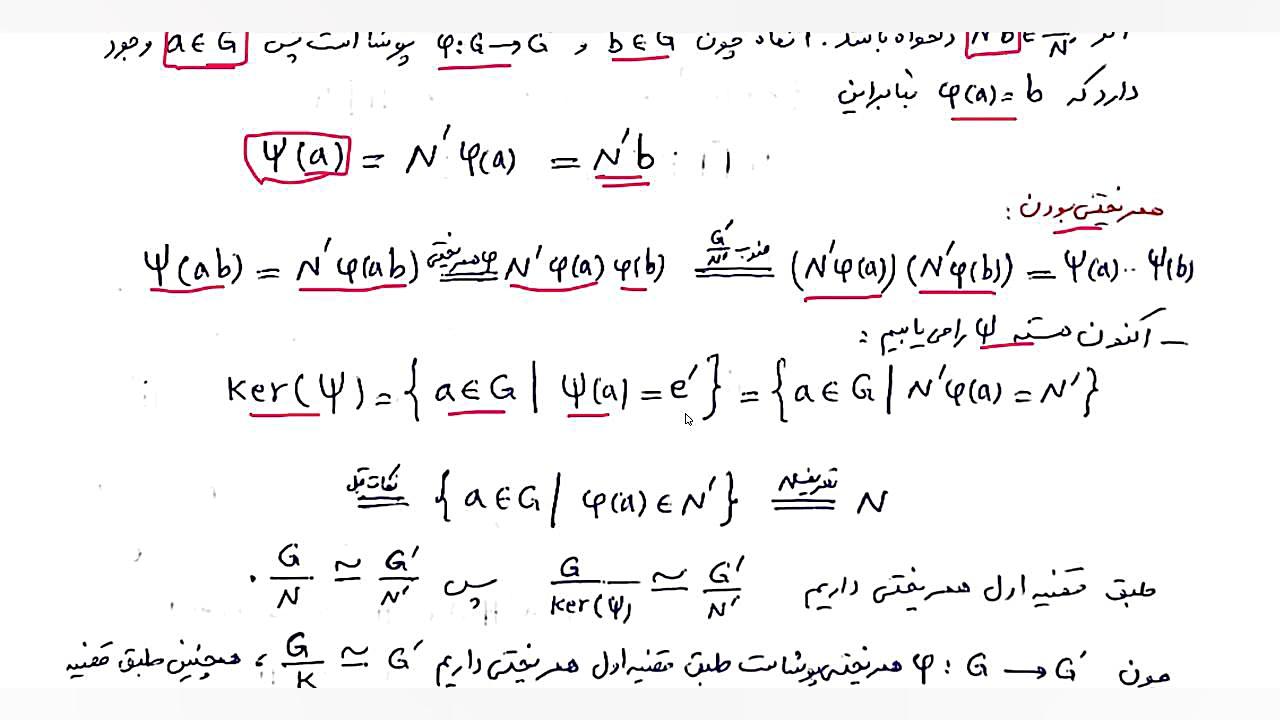 دلخواه باشد. آنگاه چون b∈G' و φ:G→G' پوشا است پس a∈G وجود
دارد که φ(a)=b بنابراین
Ψ(a) = N'φ(a) = N'b
همریختی بودن:
Ψ(ab) = N'φ(ab) =(φ همریختی) N'φ(a)φ(b) =(ضرب G'/N') (N'φ(a))(N'φ(b)) = Ψ(a)·Ψ(b)
_ اکنون هسته Ψ را می‌یابیم:
ker(Ψ) = {a∈G | Ψ(a) = e'} = {a∈G | N'φ(a) = N'}
=(نکات قبل) {a∈G | φ(a)∈N'} =(تعریف N) N
طبق قضیه اول همریختی داریم G/ker(Ψ) ≃ G'/N' پس G/N ≃ G'/N'.
چون φ: G → G' همریختی پوشاست طبق قضیه اول همریختی داریم G/K ≃ G'، همچنین طبق قضیه